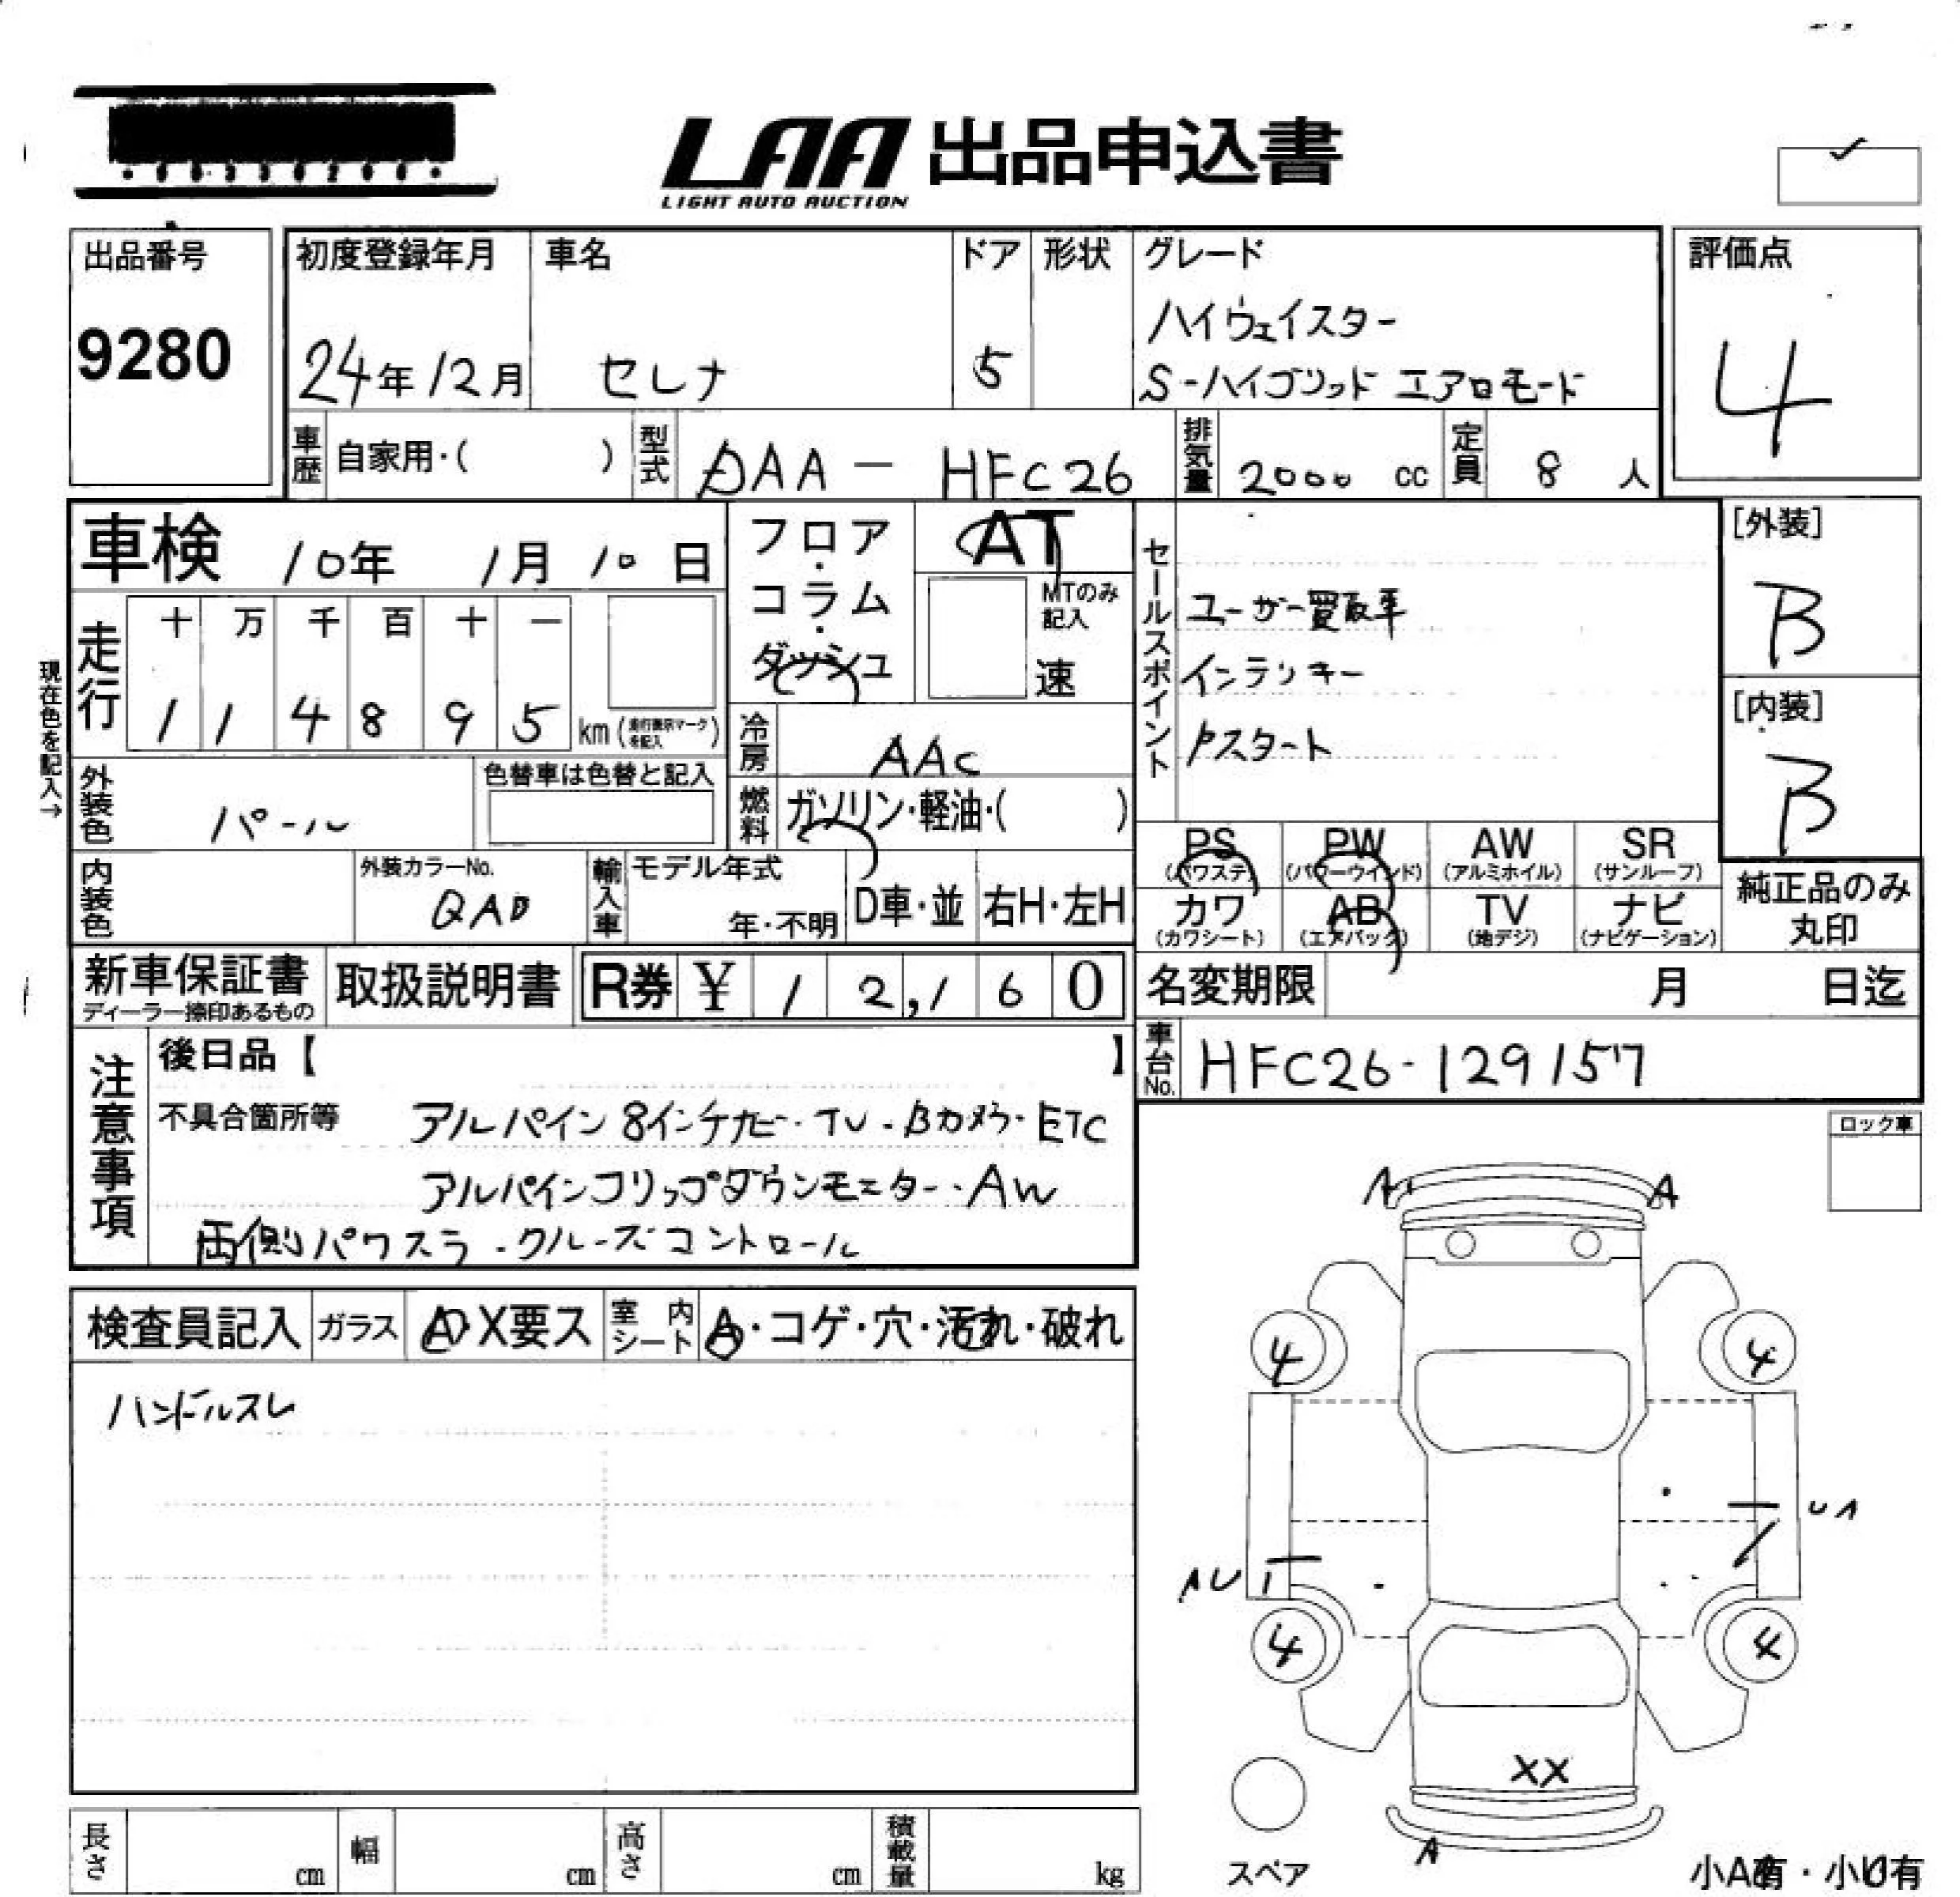 LAA 出品申込書
LIGHT AUTO AUCTION
出品番号
9280
初度登録年月
24年12月
車名
セレナ
ドア
5
形状
グレード
ハイウェイスター
S-ハイブリッド エアロモード
評価点
4
車歴
自家用・( )
型式
DAA - HFC26
排気量
2000 cc
定員
8 人
車検 10年 1月 10日
フロア・コラム・ダッシュ
AT
MTのみ記入
速
セールスポイント
ユーザー買取車
インテリキー
Pスタート
[外装]
B
[内装]
B
現在色を記入→
走行
十 万 千 百 十 一
1 1 4 8 9 5 km (走行表示マークを記入)
冷房
AAC
外装色
パール
色替車は色替と記入
燃料
ガソリン・軽油・( )
内装色
外装カラーNo.
QAB
輸入車
モデル年式
年・不明
D車・並
右H・左H
PS (パワステ)
PW (パワーウインド)
AW (アルミホイル)
SR (サンルーフ)
カワ (カワシート)
AB (エアバック)
TV (地デジ)
ナビ (ナビゲーション)
純正品のみ丸印
新車保証書
ディーラー捺印あるもの
取扱説明書
R券 ¥ 12,160
名変期限 月 日迄
車台No.
HFC26-129157
注意事項
後日品【 】
不具合箇所等
アルパイン8インチナビ・TV・Bカメラ・ETC
アルパインフリップダウンモニター・AW
両側パワスラ・クルーズコントロール
ロック車
検査員記入
ガラス
A・X要ス
室内シート
A・コゲ・穴・汚れ・破れ
ハンドルスレ
A A
4 4
UA
AU
4 4
XX
A
スペア
小A有・小U有
長さ cm
幅 cm
高さ cm
積載量 kg